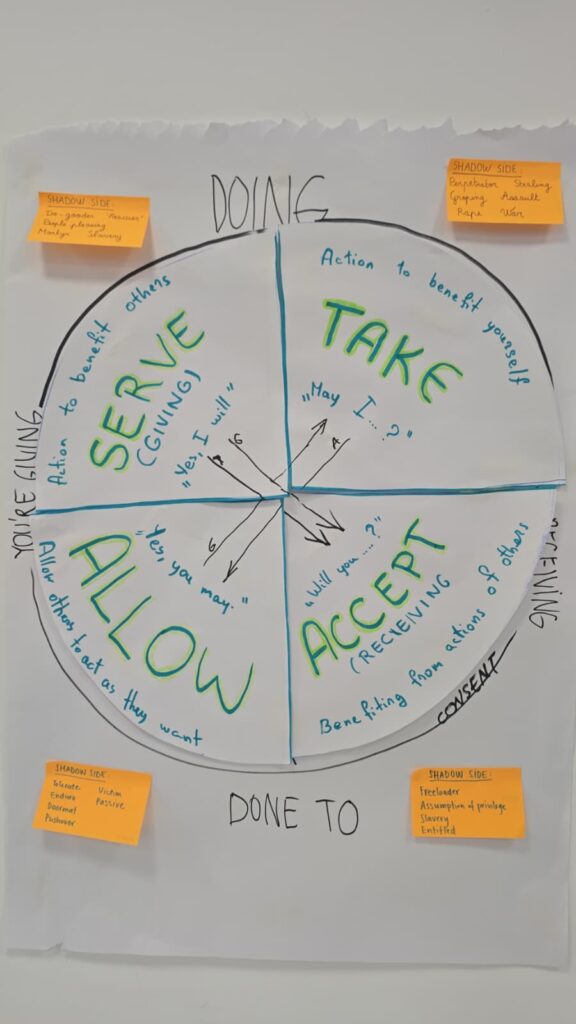 DOING
SHADOW SIDE:
Do-gooder "Rescuer"
People pleasing
Martyr Slavery
SHADOW SIDE:
Perpetrator Stealing
Groping Assault
Rape War
Action to benefit others
SERVE
(GIVING)
"Yes, I will"
Action to benefit yourself
TAKE
„May I...?"
YOU'RE GIVING
G
A
R
G
"Yes, you may."
ALLOW
Allow others to act as they want
"Will you ....?"
ACCEPT
(RECIEVING
Benefiting from actions of others
CONSENT
DONE TO
SHADOW SIDE:
Tolerate Victim
Endure Passive
Doormat
Pushover
SHADOW SIDE:
Freeloader
Assumption of privilege
Slavery
Entitled